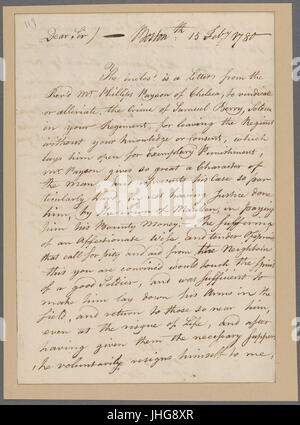 119
Dear Sir) — Boston 15 Feby 1780
The inclosd is a Letter from the
Revd Mr Phillips Payson of Chelsea, to vindicate
or alleviate, the Crime of Samuel Berry, Soldier
in your Regiment, for leaving the Regimt
without your knowledge or consent, which
lays him open for Exemplary Punishment,
Mr Payson gives so great a Character of
the Man and represents his Case so par
ticularly hard, of not having Justice done
him, by the Town of Malden, in paying
him his Bounty Money, the suffering
of an Affectionate Wife, and tender Offspring
that call for pity and aid from their Neighbors
this you are convinced would touch the
of a good Soldier, and was sufficient to
make him lay down his Arms in the
field, and return to those so near him,
even at the risque of Life, and after
having given them the necessary support
he voluntarily resigns himself to me,
alamy
Image ID: JHG8XR
www.alamy.com